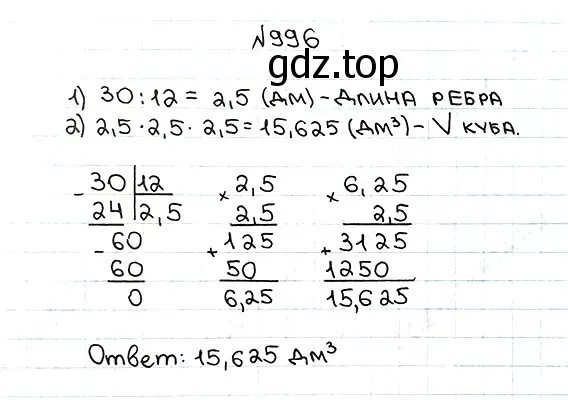 №996
gdz.top
1) 30:12 = 2,5 (дм) - длина ребра
2) 2,5 · 2,5 · 2,5 = 15,625 (дм³) - V куба.
- 30 | 12 × 2,5 × 6,25
24 | 2,5 2,5 2,5
- 60 + 125 + 3125
60 50 1250
0 6,25 15,625
Ответ: 15,625 дм³